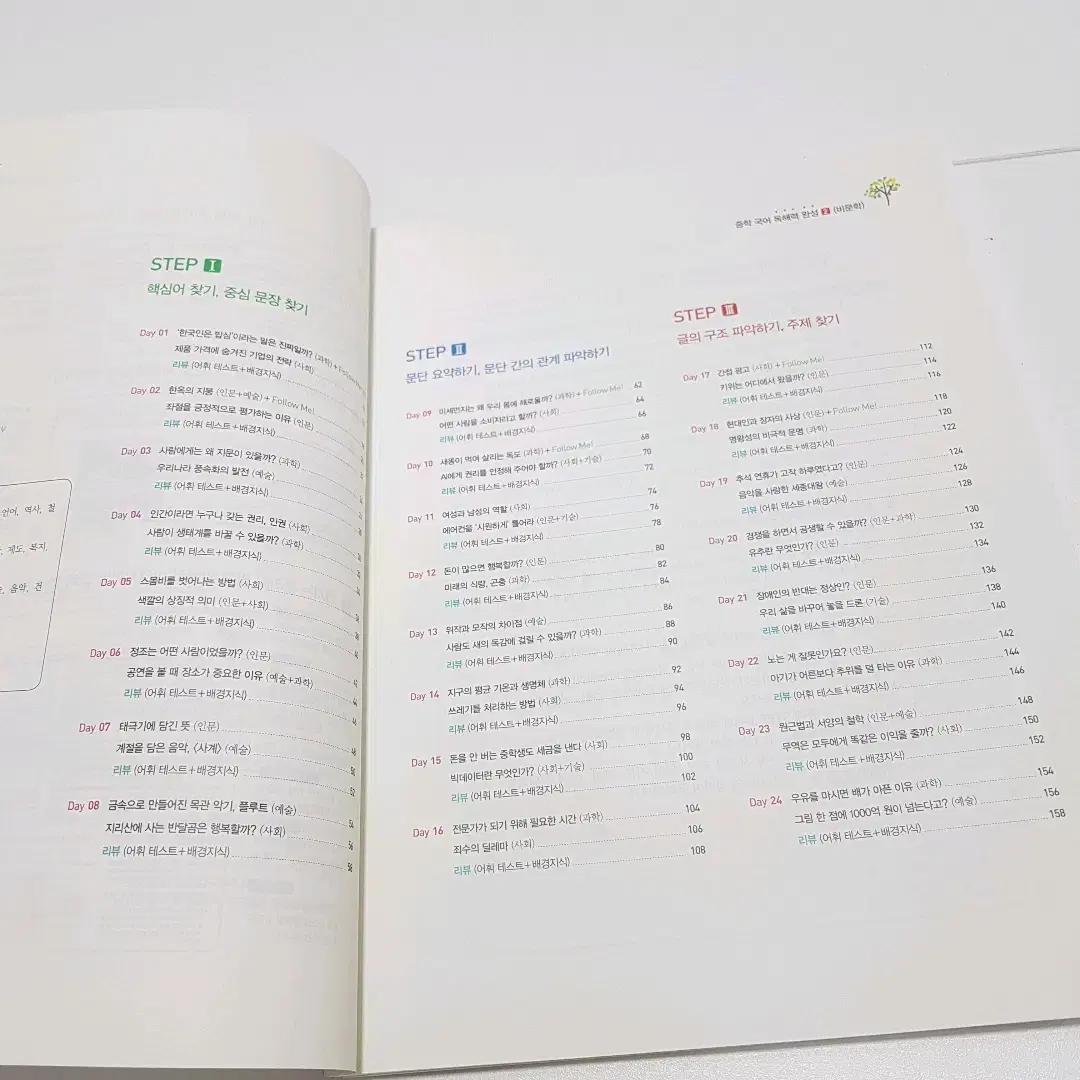 언어, 역사, 철
제도, 복지,
음악, 건
STEP I
핵심어 찾기, 중심 문장 찾기
Day 01 '한국인은 밥심'이라는 말은 진짜일까? (과학) + Follow Me!
제품 가격에 숨겨진 기업의 전략 (사회)
리뷰 (어휘 테스트+배경지식)
Day 02 한옥의 지붕 (인문+예술) + Follow Me!
좌절을 긍정적으로 평가하는 이유 (인문)
리뷰 (어휘 테스트+배경지식)
Day 03 사람에게는 왜 지문이 있을까? (과학)
우리나라 풍속화의 발전 (예술)
리뷰 (어휘 테스트+배경지식)
Day 04 인간이라면 누구나 갖는 권리, 인권 (사회)
사람이 생태계를 바꿀 수 있을까? (과학)
리뷰 (어휘 테스트+배경지식)
Day 05 스몸비를 벗어나는 방법 (사회)
색깔의 상징적 의미 (인문+사회)
리뷰 (어휘 테스트+배경지식)
Day 06 정조는 어떤 사람이었을까? (인문)
공연을 볼 때 장소가 중요한 이유 (예술+과학)
리뷰 (어휘 테스트+배경지식)
Day 07 태극기에 담긴 뜻 (인문) 48
계절을 담은 음악, 〈사계〉 (예술) 50
리뷰 (어휘 테스트+배경지식) 52
Day 08 금속으로 만들어진 목관 악기, 플루트 (예술) 54
지리산에 사는 반달곰은 행복할까? (사회) 56
리뷰 (어휘 테스트+배경지식) 58
중학 국어 독해력 완성 2 (비문학)
STEP II
문단 요약하기, 문단 간의 관계 파악하기
Day 09 미세먼지는 왜 우리 몸에 해로울까? (과학) + Follow Me! 62
어떤 사람을 소비자라고 할까? (사회) 64
리뷰 (어휘 테스트+배경지식) 66
Day 10 새똥이 먹여 살리는 독도 (과학) + Follow Me! 68
AI에게 권리를 인정해 주어야 할까? (사회+기술) 70
리뷰 (어휘 테스트+배경지식) 72
Day 11 여성과 남성의 역할 (사회) 74
에어컨을 '시원하게' 틀어라 (인문+기술) 76
리뷰 (어휘 테스트+배경지식) 78
Day 12 돈이 많으면 행복할까? (인문) 80
미래의 식량, 곤충 (과학) 82
리뷰 (어휘 테스트+배경지식) 84
Day 13 위작과 모작의 차이점 (예술) 86
사람도 새의 독감에 걸릴 수 있을까? (과학) 88
리뷰 (어휘 테스트+배경지식) 90
Day 14 지구의 평균 기온과 생명체 (과학) 92
쓰레기를 처리하는 방법 (사회) 94
리뷰 (어휘 테스트+배경지식) 96
Day 15 돈을 안 버는 중학생도 세금을 낸다 (사회) 98
빅데이터란 무엇인가? (사회+기술) 100
리뷰 (어휘 테스트+배경지식) 102
Day 16 전문가가 되기 위해 필요한 시간 (과학) 104
죄수의 딜레마 (사회) 106
리뷰 (어휘 테스트+배경지식) 108
STEP III
글의 구조 파악하기, 주제 찾기
Day 17 간접 광고 (사회) + Follow Me! 112
키위는 어디에서 왔을까? (인문) 114
리뷰 (어휘 테스트+배경지식) 116
Day 18 현대인과 장자의 사상 (인문) + Follow Me! 118
명왕성의 비극적 운명 (과학) 120
리뷰 (어휘 테스트+배경지식) 122
Day 19 추석 연휴가 고작 하루였다고? (인문) 124
음악을 사랑한 세종대왕 (예술) 126
리뷰 (어휘 테스트+배경지식) 128
Day 20 경쟁을 하면서 공생할 수 있을까? (인문+과학) 130
유추란 무엇인가? (인문) 132
리뷰 (어휘 테스트+배경지식) 134
Day 21 장애인의 반대는 정상인? (인문) 136
우리 삶을 바꾸어 놓을 드론 (기술) 138
리뷰 (어휘 테스트+배경지식) 140
Day 22 노는 게 잘못인가요? (인문) 142
아기가 어른보다 추위를 덜 타는 이유 (과학) 144
리뷰 (어휘 테스트+배경지식) 146
Day 23 원근법과 서양의 철학 (인문+예술) 148
무역은 모두에게 똑같은 이익을 줄까? (사회) 150
리뷰 (어휘 테스트+배경지식) 152
Day 24 우유를 마시면 배가 아픈 이유 (과학) 154
그림 한 점에 1000억 원이 넘는다고? (예술) 156
리뷰 (어휘 테스트+배경지식) 158